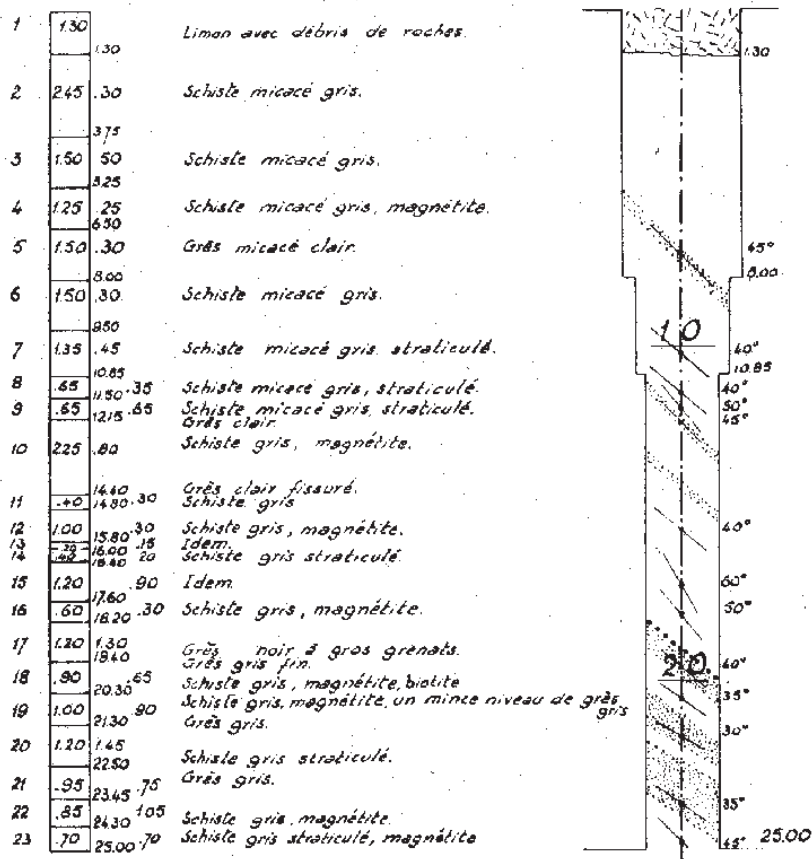 1 1.30 Limon avec débris de roches. 1.30
1.30
2 2.45 .30 Schiste micacé gris.
3.75
3 1.50 .50 Schiste micacé gris.
5.25
4 1.25 .25 Schiste micacé gris, magnétite.
6.50
5 1.50 .30 Grès micacé clair. 45°
8.00 8.00
6 1.50 .30 Schiste micacé gris.
9.50 10
7 1.35 .45 Schiste micacé gris straticulé. 40°
10.85 10.85
8 .65 .35 Schiste micacé gris, straticulé. 40°
11.50
9 .65 .65 Schiste micacé gris, straticulé. 50°
12.15 Grès clair. 45°
10 2.25 .80 Schiste gris, magnétite.
14.40 Grès clair fissuré.
11 .40 14.80 .30 Schiste gris
12 1.00 15.80 .30 Schiste gris, magnétite. 40°
13 .20 16.00 .15 Idem.
14 .40 16.40 .20 Schiste gris straticulé.
15 1.20 .90 Idem. 60°
17.60
16 .60 18.20 .30 Schiste gris, magnétite. 50°
17 1.20 1.30 Grès noir à gros grenats.
19.40 Grès gris fin. 40°
18 .90 20.30 .65 Schiste gris, magnétite, biotite 20
19 1.00 .90 Schiste gris, magnétite, un mince niveau de grès gris 35°
21.30 Grès gris. 30°
20 1.20 1.45 Schiste gris straticulé.
22.50
21 .95 23.45 .75 Grès gris.
22 .85 24.30 1.05 Schiste gris, magnétite. 35°
23 .70 25.00 .70 Schiste gris straticulé, magnétite 45° 25.00